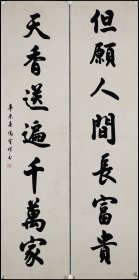 但願人間長富貴
天香送遍千萬家